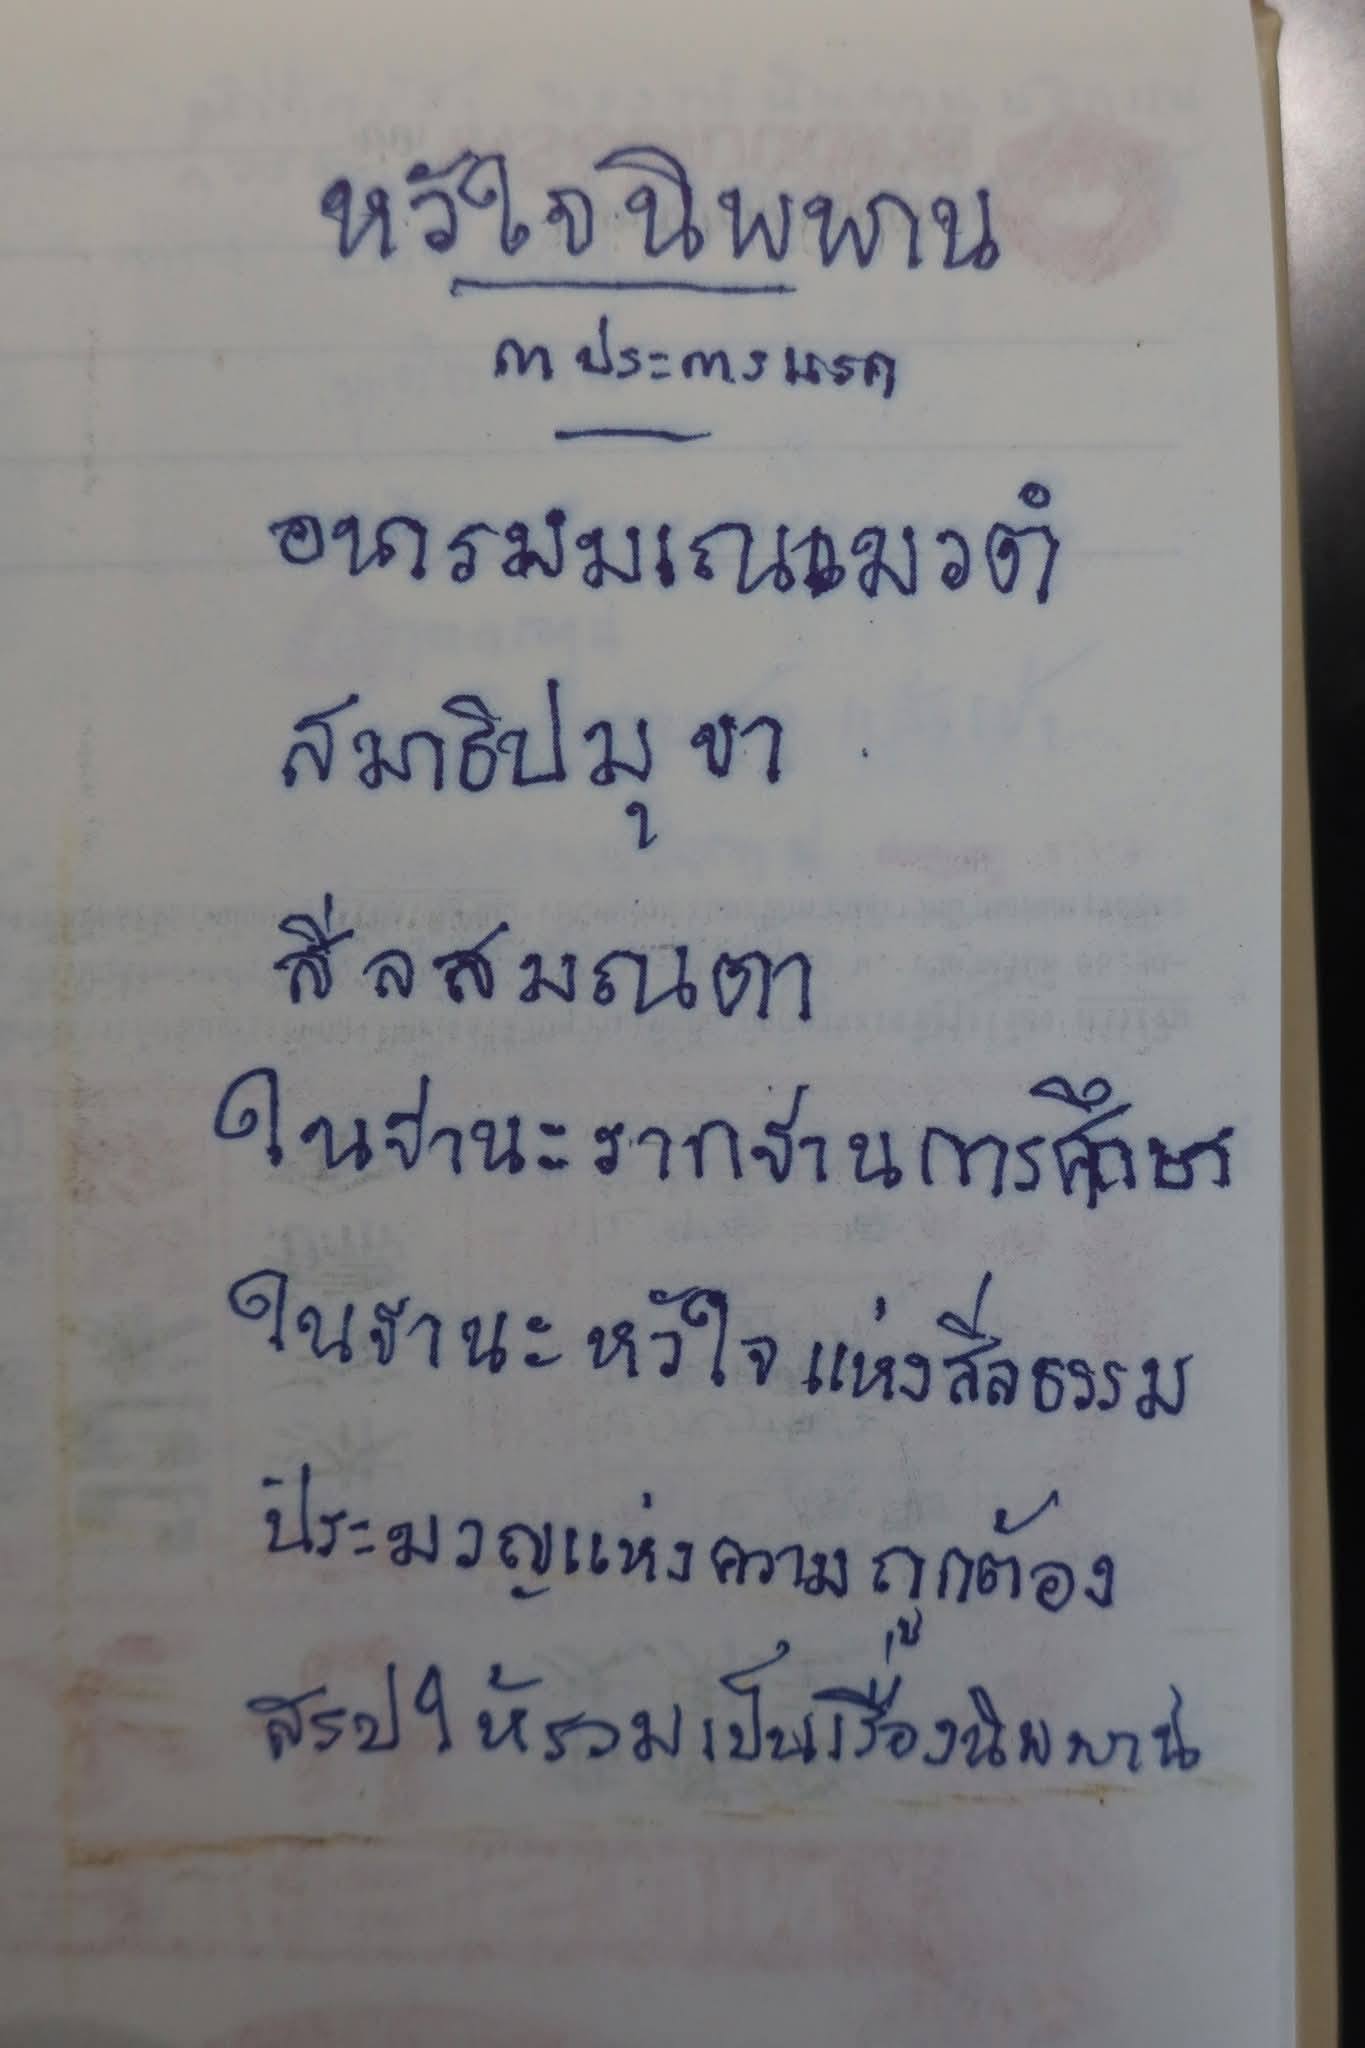 หัวใจนิพพาน
อนารมมเณเมวตํ
สมาธิปมุขา
สีลสมณตา
ในฐานะรากฐานการศึกษา
ในฐานะหัวใจแห่งสีลธรรม
ประมวญแห่งความถูกต้อง
สรุปให้รวมเป็นเรื่องนิพพาน